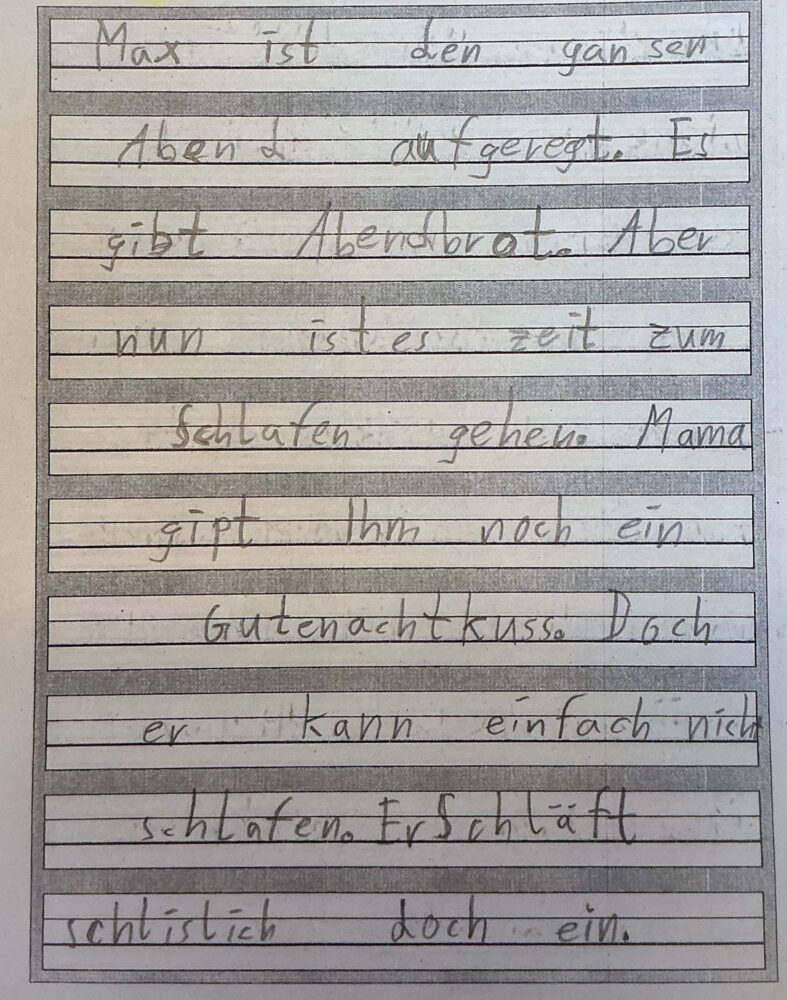 Max ist den gansen
Abend aufgeregt. Es
gibt Abendbrot. Aber
nun ist es zeit zum
Schlafen gehen. Mama
gipt Ihm noch ein
Gutenachtkuss. Doch
er kann einfach nich
schlafen. Er Schläft
schlislich doch ein.